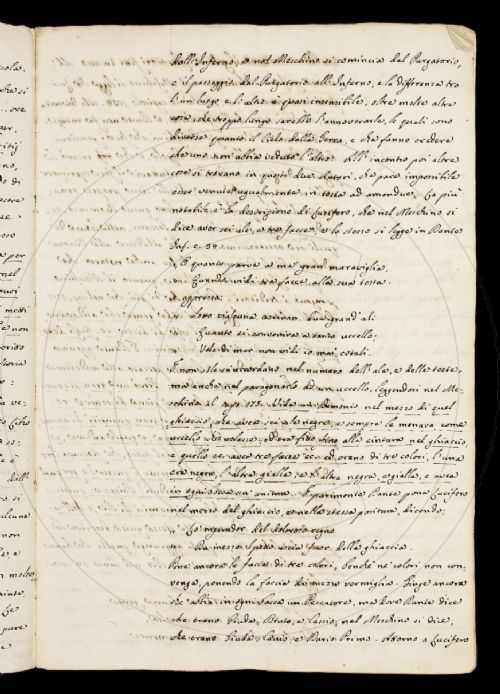 dall'Inferno, e nel Meschino si comincia dal Purgatorio,
e il passaggio dal Purgatorio all'Inferno, e la differenza tra
l'un luogo e l'altro è quasi insensibile, oltre molte altre
cose che troppo lungo sarebbe l'annoverarle, le quali sono
diverse quanto il Cielo dalla Terra, e che fanno credere
che uno non abbia veduto l'altro. All'incontro poi altre
cose si trovano in questi due Autori, che pare impossibile
esser venute ugualmente in testa ad amendue. La più
notabile è la descrizione di Lucifero, che nel Meschino si
dice aver sei ale, e tre facce, e lo stesso si legge in Dante
Inf. c. 34.
" O quanto parve a me gran maraviglia
" Quando vidi tre facce alla sua testa.
e appresso:
" Sotto ciascuna uscivan due grand'ali
" Quanto si conveniva a tanto uccello:
" Vele di mar non vid'io mai cotali.
E non solo s'accordano nel numero dell'ale, e delle teste,
ma anche nel paragonarlo ad un uccello, leggendosi nel Me-
schino al cap. Vide un Demonio nel mezzo di quel
ghiaccio, che avea sei ale negre, e sempre le menava come
uccello che volasse, ed era fitto fino alla cintura nel ghiaccio,
e quello avea tre facce ed erano di tre colori, l'una
era negra, l'altra gialla, e l'altra negra, e gialla, e avea
in ogni bocca un'anima. E parimente Dante pone Lucifero
nel mezzo del ghiaccio, e nella stessa positura, dicendo:
" Lo imperador del doloroso regno
" Da mezzo il petto uscia fuor della ghiaccia.
Pone ancora le facce di tre colori, benchè ne' colori non con-
venga, ponendo la faccia di mezzo vermiglia. Finge ancora
che abbia in ogni bocca un Peccatore, ma dove Dante dice
che erano Giuda, Bruto, e Cassio, nel Meschino si dice,
che erano Giuda, Cassio, e Dario Primo. Attorno a Lucifero